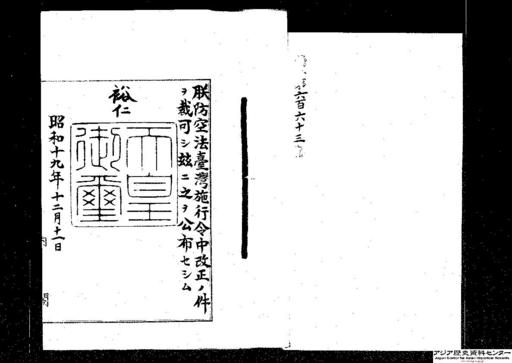 六百六十三
朕防空法臺灣施行令中改正ノ件
ヲ裁可シ玆ニ之ヲ公布セシム
裕仁
天皇御璽
昭和十九年十二月十一日
内閣
アジア歴史資料センター
Japan Center for Asian Historical Records